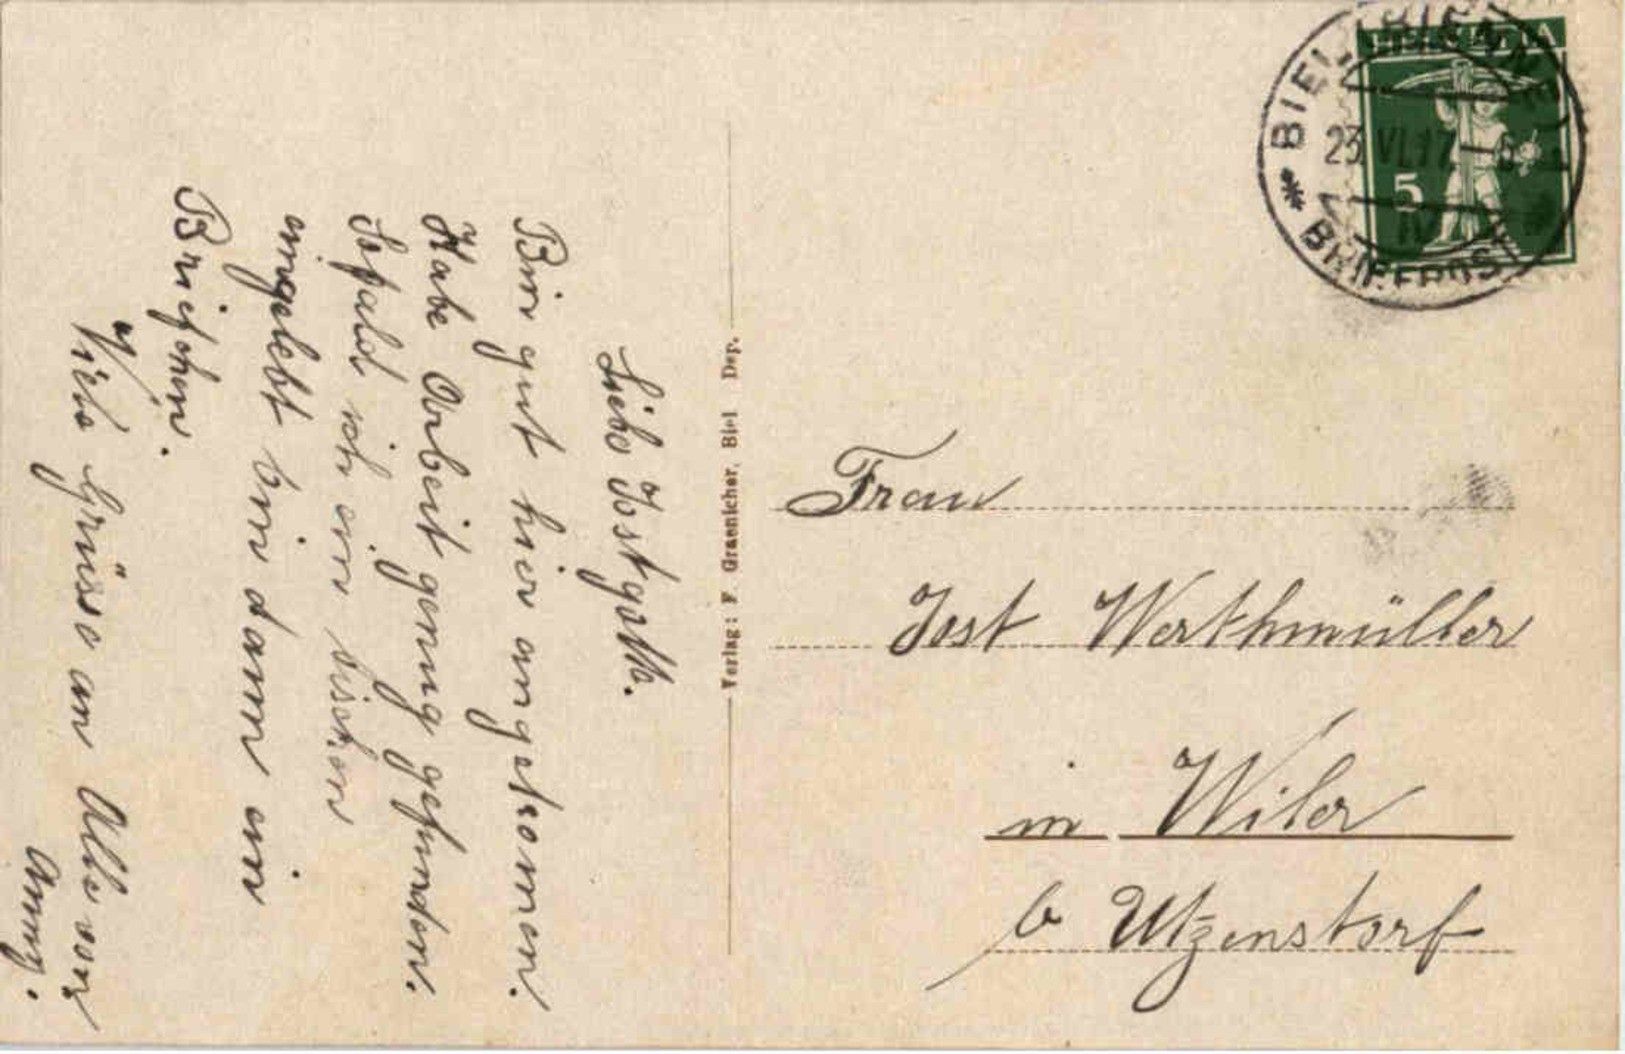 Liebe Jostgotte.
Bin gut hier angekomen.
Habe Arbeit genug gefunden.
Sobald ich ein bischen
eingelebt bin dann ein
Briefchen.
Viele Grüsse an Alle von
Anny.
Verlag: F. Graenicher, Biel Dep.
HELVETIA
5
BIEL (BIENNE) 1
23.VI.17.-6
BRIEFPOST
Frau
Jost Werthmüller
in Wiler
b Utzenstorf